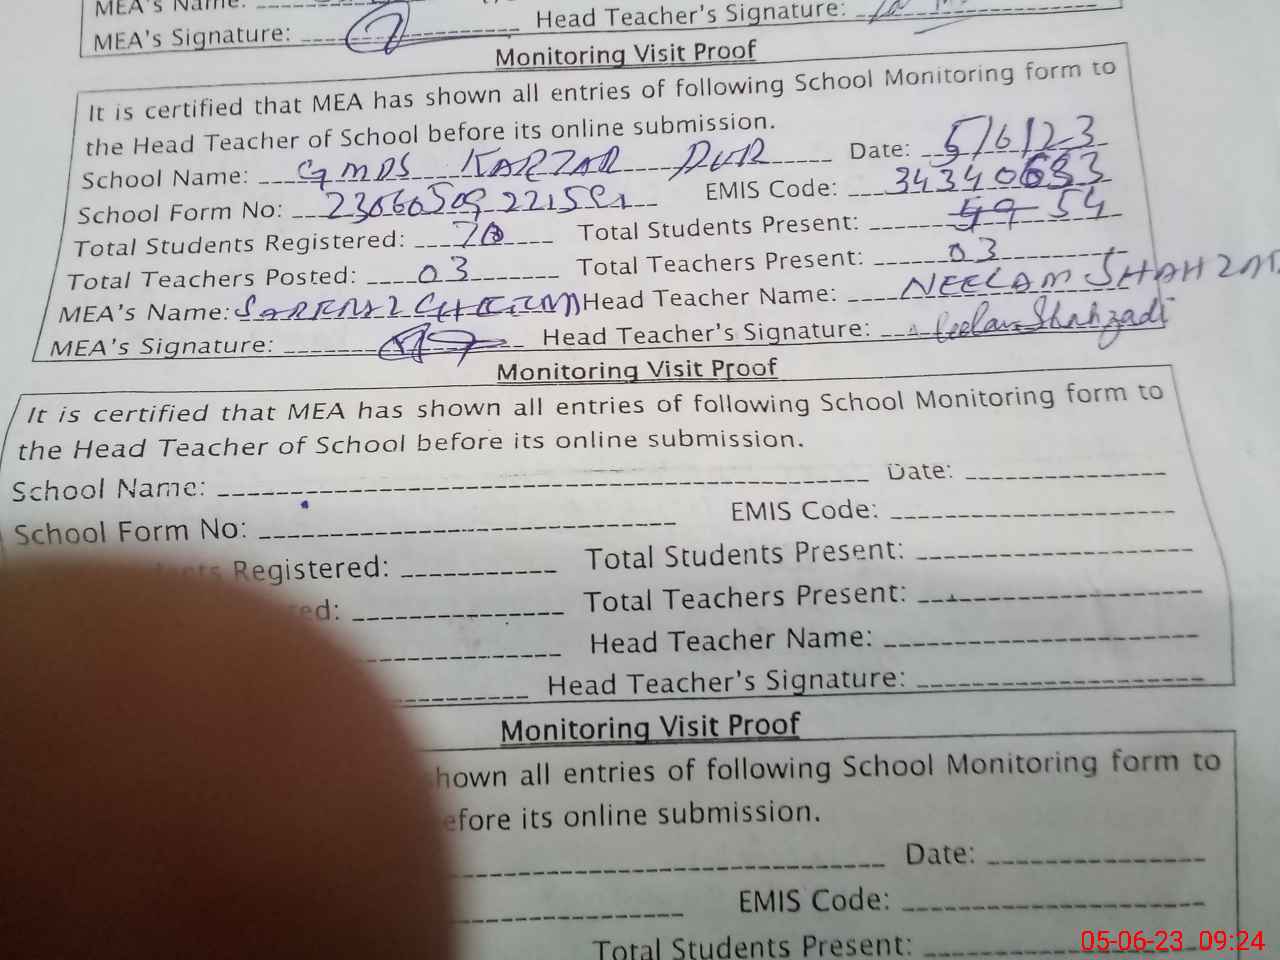 MEA's Name:
MEA's Signature: Head Teacher's Signature:
Monitoring Visit Proof
It is certified that MEA has shown all entries of following School Monitoring form to
the Head Teacher of School before its online submission.
School Name: GMPS KARTAR PUR Date: 5/6/23
School Form No: EMIS Code:
Total Students Registered: 70 Total Students Present: 49 54
Total Teachers Posted: 03 Total Teachers Present: 03
MEA's Name: Head Teacher Name: NEELAM
MEA's Signature: Head Teacher's Signature: Neelam Shahzadi
Monitoring Visit Proof
It is certified that MEA has shown all entries of following School Monitoring form to
the Head Teacher of School before its online submission.
School Name: Date:
School Form No: EMIS Code:
Registered: Total Students Present:
Total Teachers Present:
Head Teacher Name:
Head Teacher's Signature:
Monitoring Visit Proof
shown all entries of following School Monitoring form to
before its online submission.
Date:
EMIS Code:
Total Students Present:
05-06-23 09:24